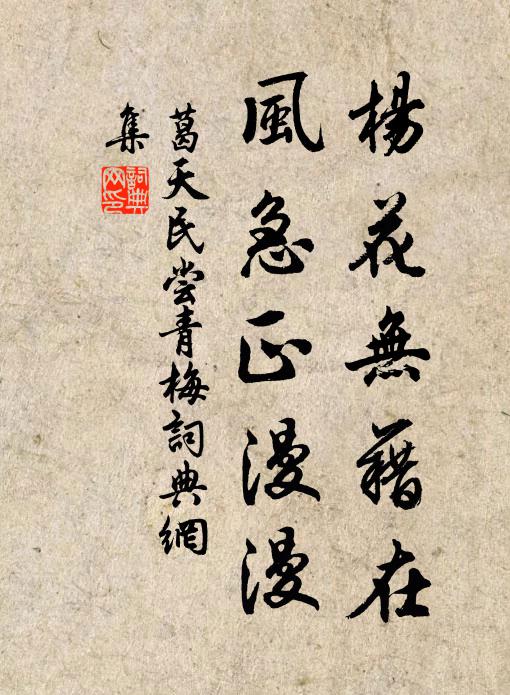 楊花無藉在
風急正漫漫
葛天民嘗青梅詞典網
集
詞典網印